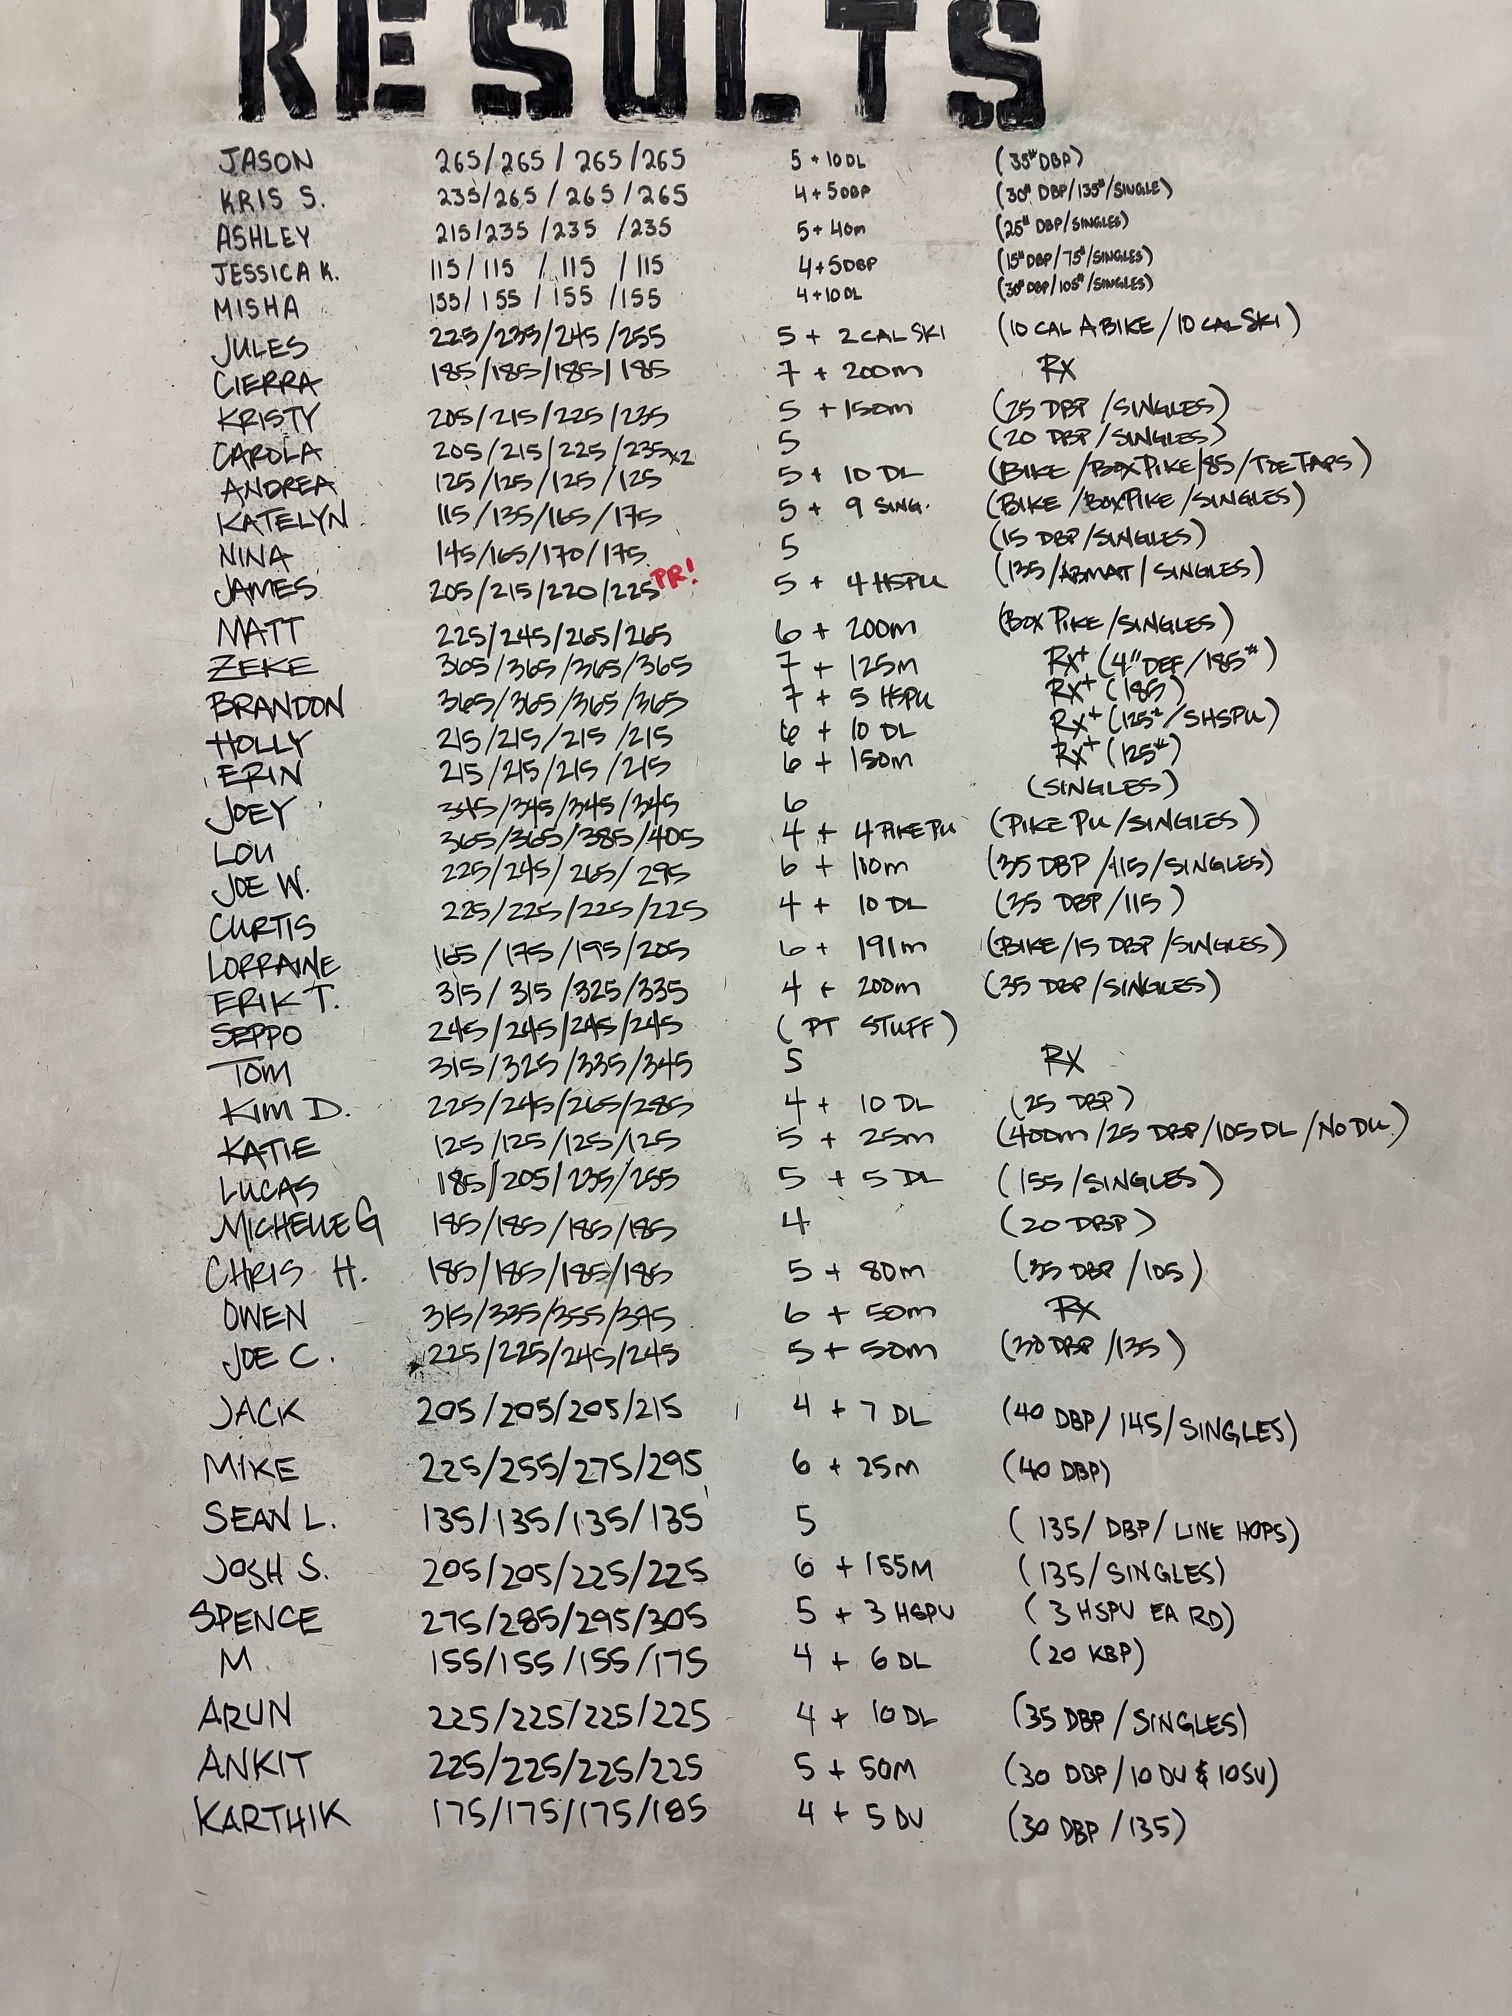 RESULTS
JASON 265/265/265/265 5 + 10 DL (35# DBP)
KRIS S. 235/265/265/265 4 + 5 DBP (30# DBP/135#/SINGLE)
ASHLEY 215/235/235/235 5 + 40m (25# DBP/SINGLES)
JESSICA K. 115/115/115/115 4 + 5 DBP (15# DBP/75#/SINGLES)
MISHA 155/155/155/155 4 + 10 DL (30# DBP/105#/SINGLES)
JULES 225/235/245/255 5 + 2 CAL SKI (10 CAL A BIKE/10 CAL SKI)
CIERRA 185/185/185/185 7 + 200m RX
KRISTY 205/215/225/235 5 + 150m (25 DBP/SINGLES)
CAROLA 205/215/225/235x2 5 (20 DBP/SINGLES)
ANDREA 125/125/125/125 5 + 10 DL (BIKE/BOX PIKE/85/TOE TAPS)
KATELYN 115/135/165/175 5 + 9 SING. (BIKE/BOX PIKE/SINGLES)
NINA 145/165/170/175 5 (15 DBP/SINGLES)
JAMES 205/215/220/225 PR! 5 + 4 HSPU (135/ABMAT/SINGLES)
MATT 225/245/265/265 6 + 200m (BOX PIKE/SINGLES)
ZEKE 365/365/365/365 7 + 125m RX+ (4" DEF/185#)
BRANDON 365/365/365/365 7 + 5 HSPU RX+ (185)
HOLLY 215/215/215/215 6 + 10 DL RX+ (125#/SHSPU)
ERIN 215/215/215/215 6 + 150m RX+ (125#)
JOEY 345/345/345/345 6 (SINGLES)
LOU 365/365/385/405 4 + 4 PIKE PU (PIKE PU/SINGLES)
JOE W. 225/245/265/295 6 + 100m (35 DBP/115/SINGLES)
CURTIS 225/225/225/225 4 + 10 DL (35 DBP/115)
LORRAINE 165/175/195/205 6 + 191m (BIKE/15 DBP/SINGLES)
ERIK T. 315/315/325/335 4 + 200m (35 DBP/SINGLES)
SEPPO 245/245/245/245 (PT STUFF)
TOM 315/325/335/345 5 RX
KIM D. 225/245/265/285 4 + 10 DL (25 DBP)
KATIE 125/125/125/125 5 + 25m (400m/25 DBP/105 DL/NO DU)
LUCAS 185/205/235/255 5 + 5 DL (155/SINGLES)
MICHELLE G 185/185/185/185 4 (20 DBP)
CHRIS H. 185/185/185/185 5 + 80m (35 DBP/105)
OWEN 315/335/355/375 6 + 50m RX
JOE C. 225/225/245/245 5 + 50m (30 DBP/135)
JACK 205/205/205/215 4 + 7 DL (40 DBP/145/SINGLES)
MIKE 225/255/275/295 6 + 25M (40 DBP)
SEAN L. 135/135/135/135 5 (135/DBP/LINE HOPS)
JOSH S. 205/205/225/225 6 + 155M (135/SINGLES)
SPENCE 275/285/295/305 5 + 3 HSPU (3 HSPU EA RD)
M. 155/155/155/175 4 + 6 DL (20 KBP)
ARUN 225/225/225/225 4 + 10 DL (35 DBP/SINGLES)
ANKIT 225/225/225/225 5 + 50M (30 DBP/10 DU & 10SU)
KARTHIK 175/175/175/185 4 + 5 DU (30 DBP/135)